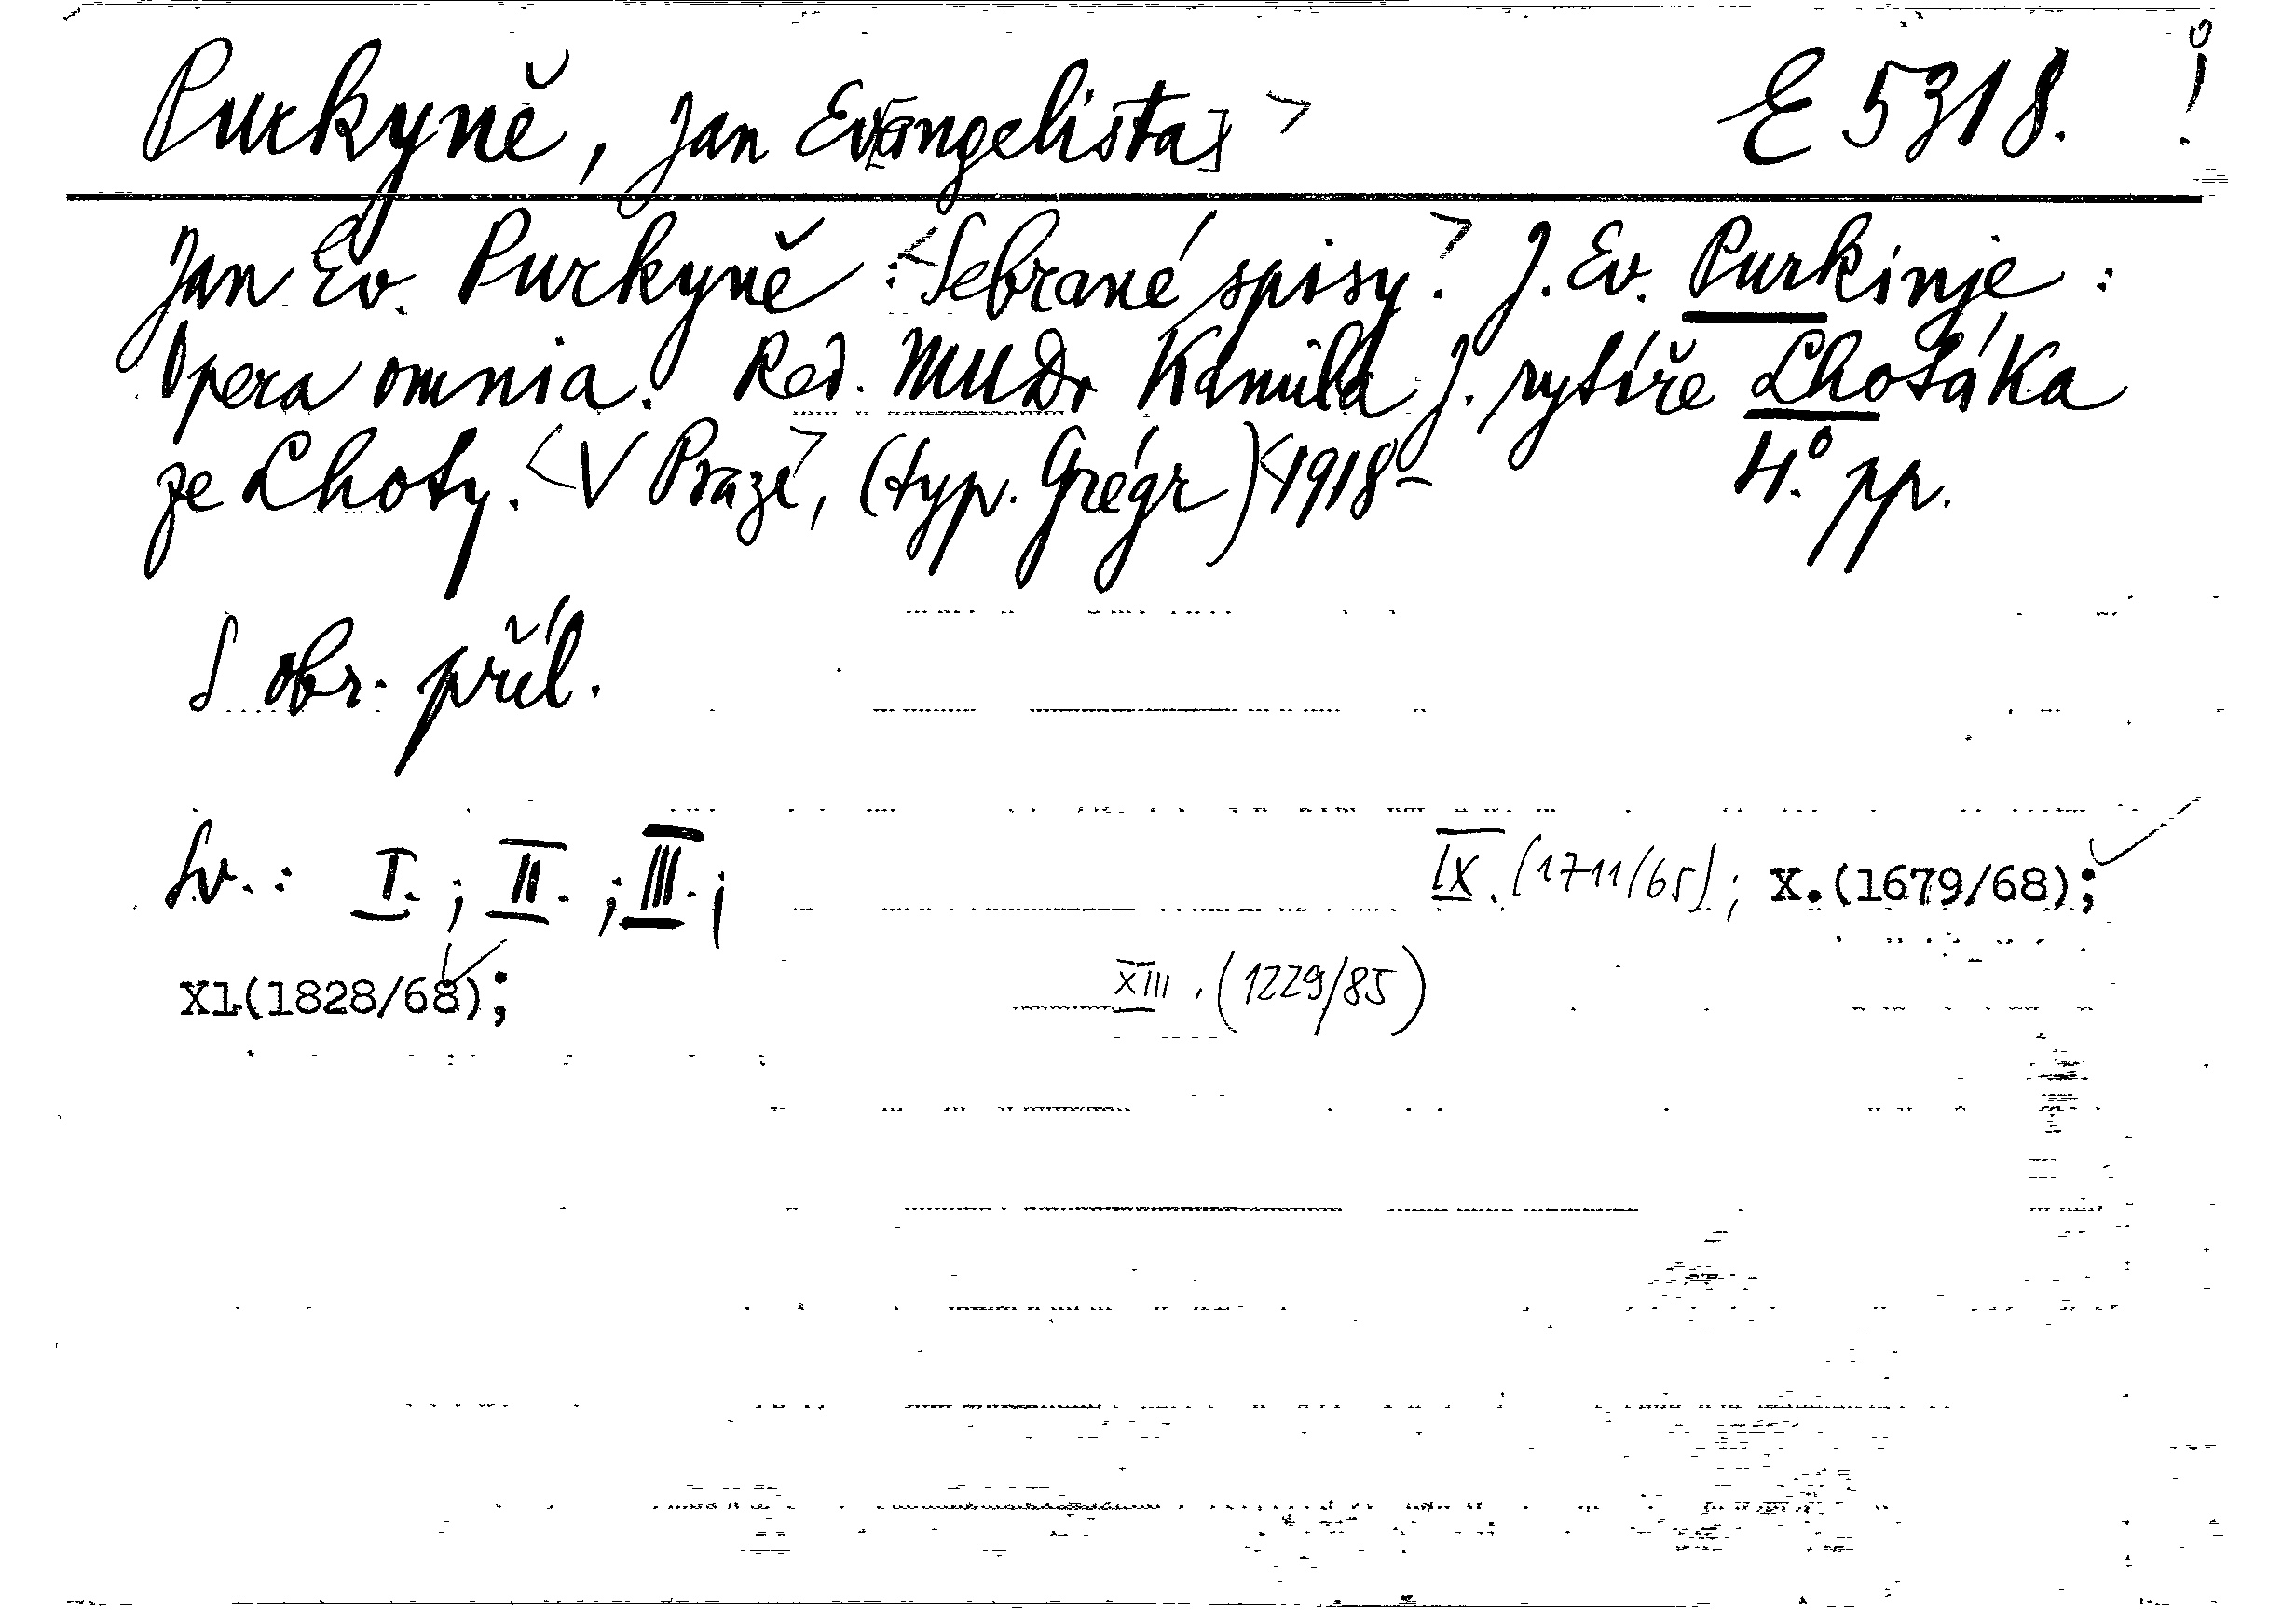 Purkyně, Jan Ev[angelista] > E 5318. !
Jan Ev. Purkyně : <Sebrané spisy.> J. Ev. Purkinje :
Opera omnia. Red. MUDr Kamila J. rytíře Lhotáka
ze Lhoty. <V Praze>, (typ. Grégr) <1918- 4° pp.
S obr. příl.
Sv.: I. ; II. ; III. ; IX. (1711/65) ; X.(1679/68);
X1.(1828/68); XIII. (1229/85)